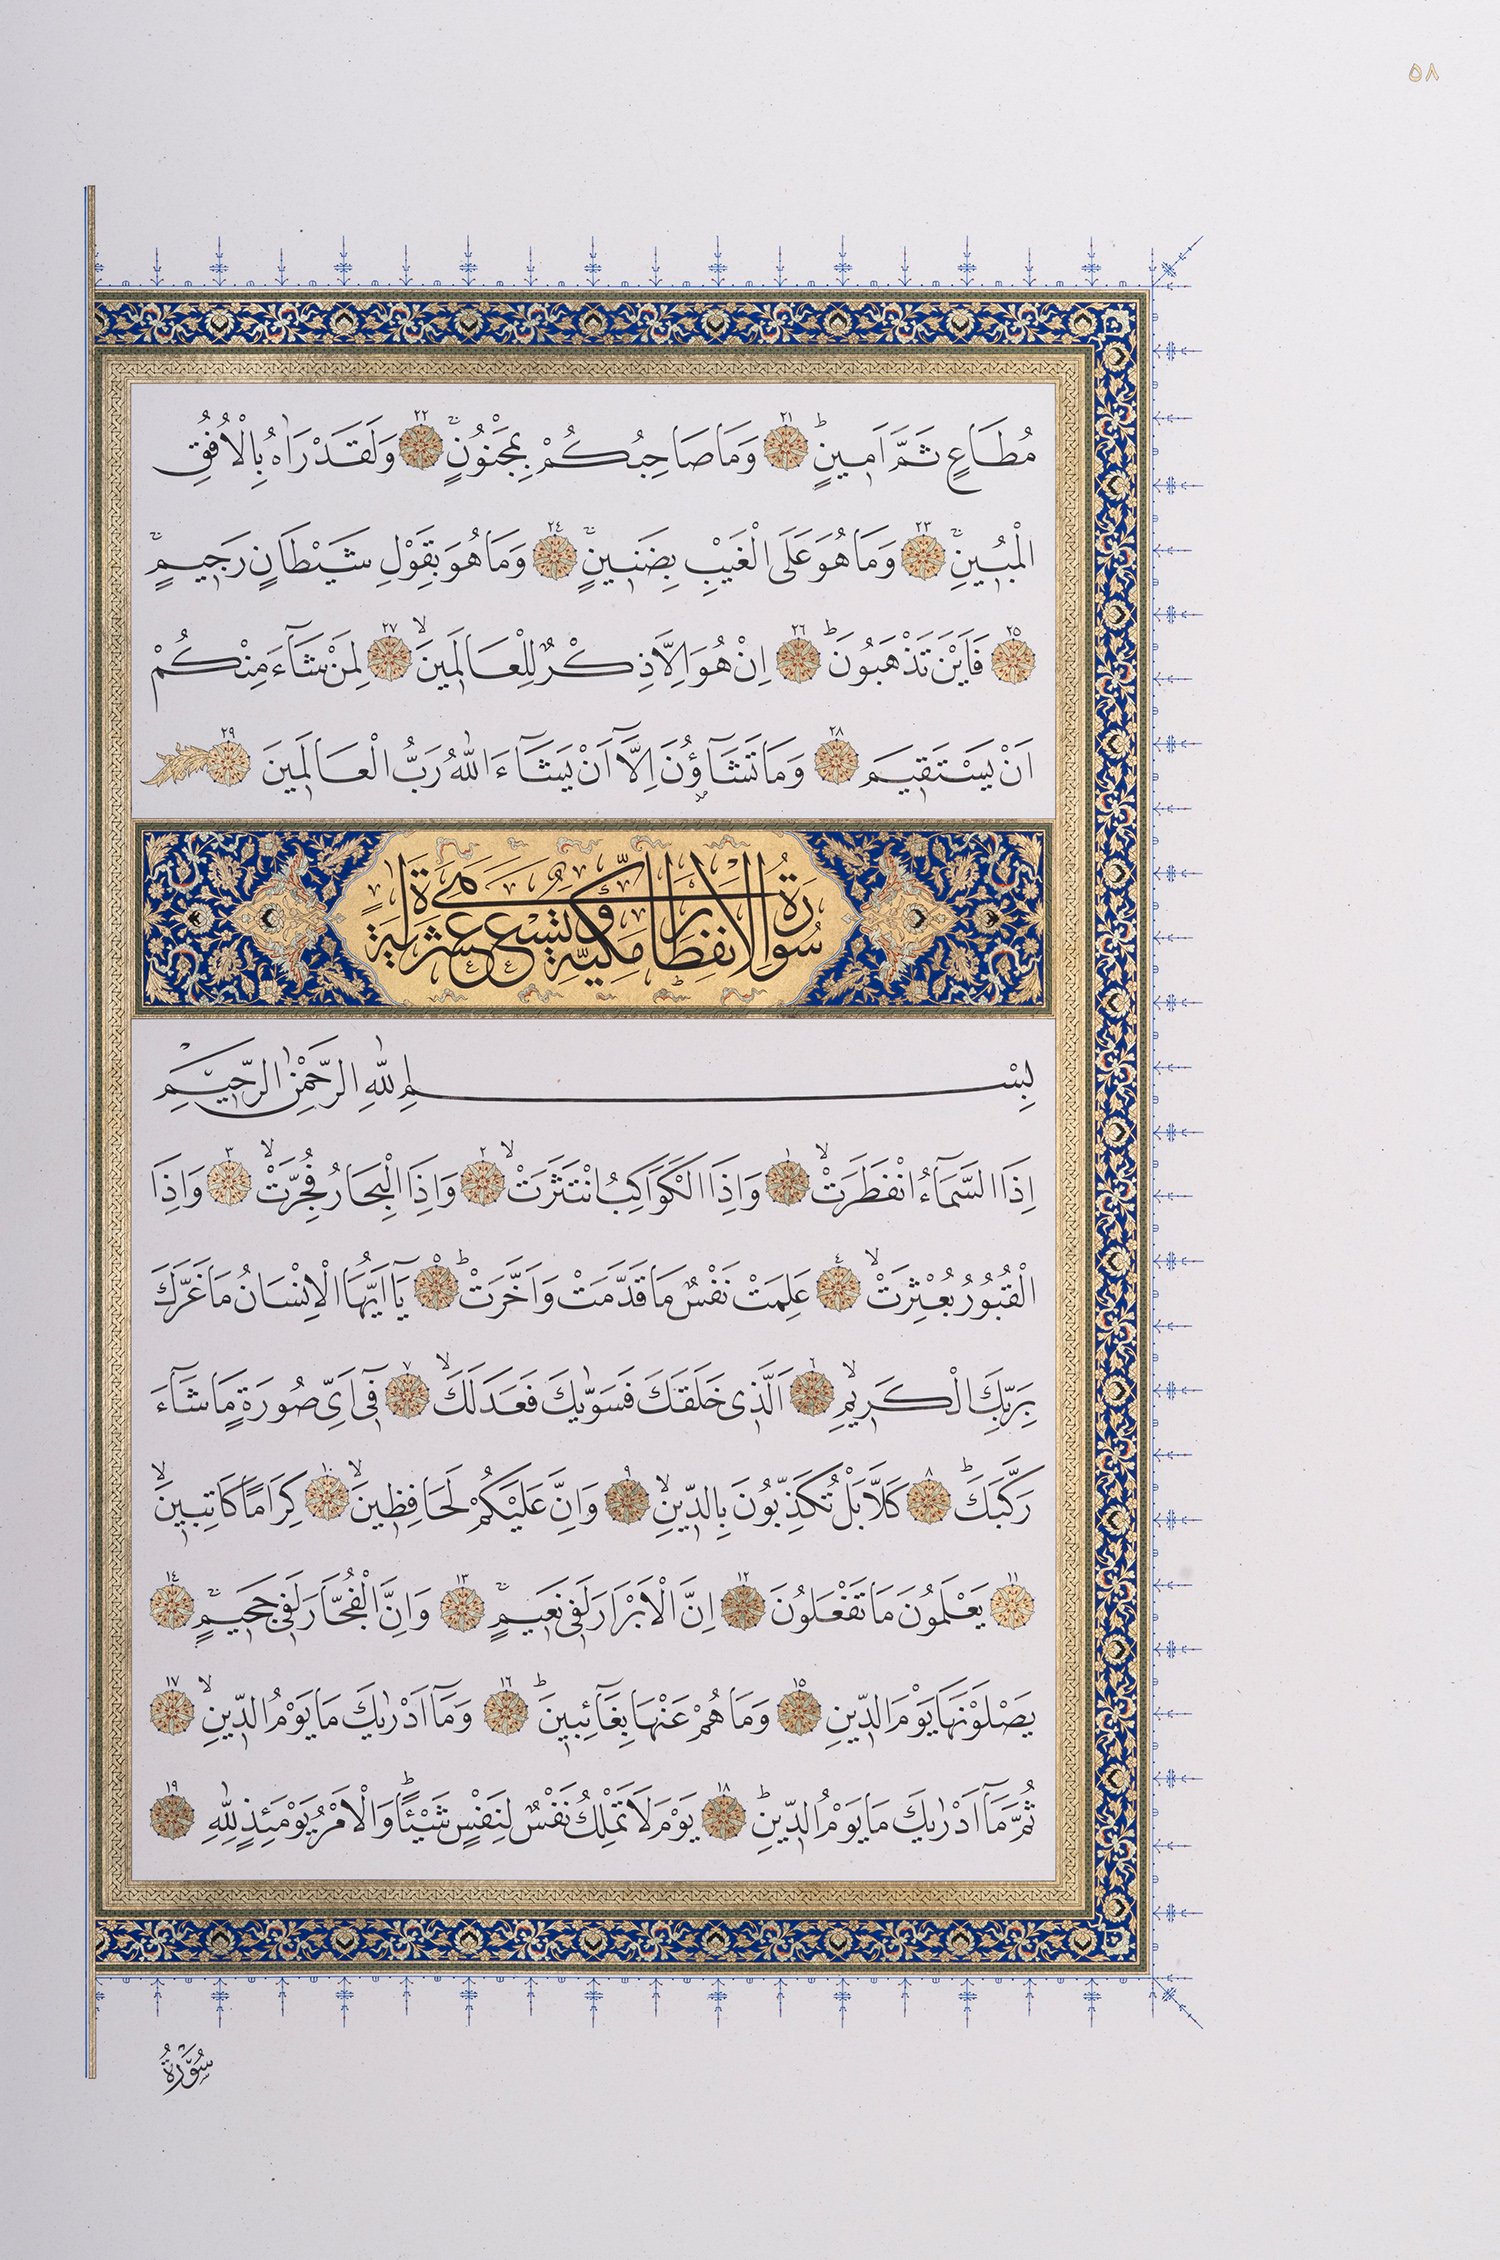 ٥٨
مُطَاعٍ ثَمَّ اَمٖينٍ ٢١ وَمَا صَاحِبُكُمْ بِمَجْنُونٍ ٢٢ وَلَقَدْ رَاٰهُ بِالْاُفُقِ
الْمُبٖينِ ٢٣ وَمَا هُوَ عَلَى الْغَيْبِ بِضَنٖينٍ ٢٤ وَمَا هُوَ بِقَوْلِ شَيْطَانٍ رَجٖيمٍ
٢٥ فَاَيْنَ تَذْهَبُونَ ٢٦ اِنْ هُوَ اِلَّا ذِكْرٌ لِلْعَالَمٖينَ ٢٧ لِمَنْ شَٓاءَ مِنْكُمْ
اَنْ يَسْتَقٖيمَ ٢٨ وَمَا تَشَٓاؤُ۫نَ اِلَّٓا اَنْ يَشَٓاءَ اللّٰهُ رَبُّ الْعَالَمٖينَ ٢٩
سُورَةُ الْاِنْفِطَارِ مَكِّيَّةٌ وَهِيَ تِسْعَ عَشْرَةَ اٰيَةً
بِسْمِ اللّٰهِ الرَّحْمٰنِ الرَّحٖيمِ
اِذَا السَّمَٓاءُ انْفَطَرَتْ ١ وَاِذَا الْكَوَاكِبُ انْتَثَرَتْ ٢ وَاِذَا الْبِحَارُ فُجِّرَتْ ٣ وَاِذَا
الْقُبُورُ بُعْثِرَتْ ٤ عَلِمَتْ نَفْسٌ مَا قَدَّمَتْ وَاَخَّرَتْ ٥ يَٓا اَيُّهَا الْاِنْسَانُ مَا غَرَّكَ
بِرَبِّكَ الْكَرٖيمِ ٦ اَلَّذٖي خَلَقَكَ فَسَوّٰيكَ فَعَدَلَكَ ٧ فٖٓي اَيِّ صُورَةٍ مَا شَٓاءَ
رَكَّبَكَ ٨ كَلَّا بَلْ تُكَذِّبُونَ بِالدّٖينِ ٩ وَاِنَّ عَلَيْكُمْ لَحَافِظٖينَ ١٠ كِرَامًا كَاتِبٖينَ
١١ يَعْلَمُونَ مَا تَفْعَلُونَ ١٢ اِنَّ الْاَبْرَارَ لَفٖي نَعٖيمٍ ١٣ وَاِنَّ الْفُجَّارَ لَفٖي جَحٖيمٍ ١٤
يَصْلَوْنَهَا يَوْمَ الدّٖينِ ١٥ وَمَا هُمْ عَنْهَا بِغَٓائِبٖينَ ١٦ وَمَٓا اَدْرٰيكَ مَا يَوْمُ الدّٖينِ ١٧
ثُمَّ مَٓا اَدْرٰيكَ مَا يَوْمُ الدّٖينِ ١٨ يَوْمَ لَا تَمْلِكُ نَفْسٌ لِنَفْسٍ شَيْـًٔا وَالْاَمْرُ يَوْمَئِذٍ لِلّٰهِ ١٩
سُورَةُ